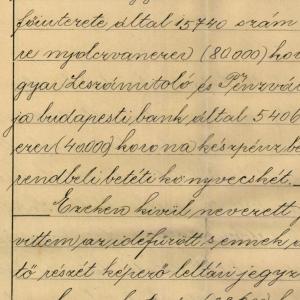 főinterete által 15.740 szám
re nyolczvanezer (80.000) ko
gyar Leszámitoló és Pénzvá
ja budapesti bank által 5406
ezer (40.000) korona készpénz be
rendbeli betéti könyvecskét.
Ezeken kivül nevezett
vittem az idefűzött s ennek
tő részét képező leltári jegyz